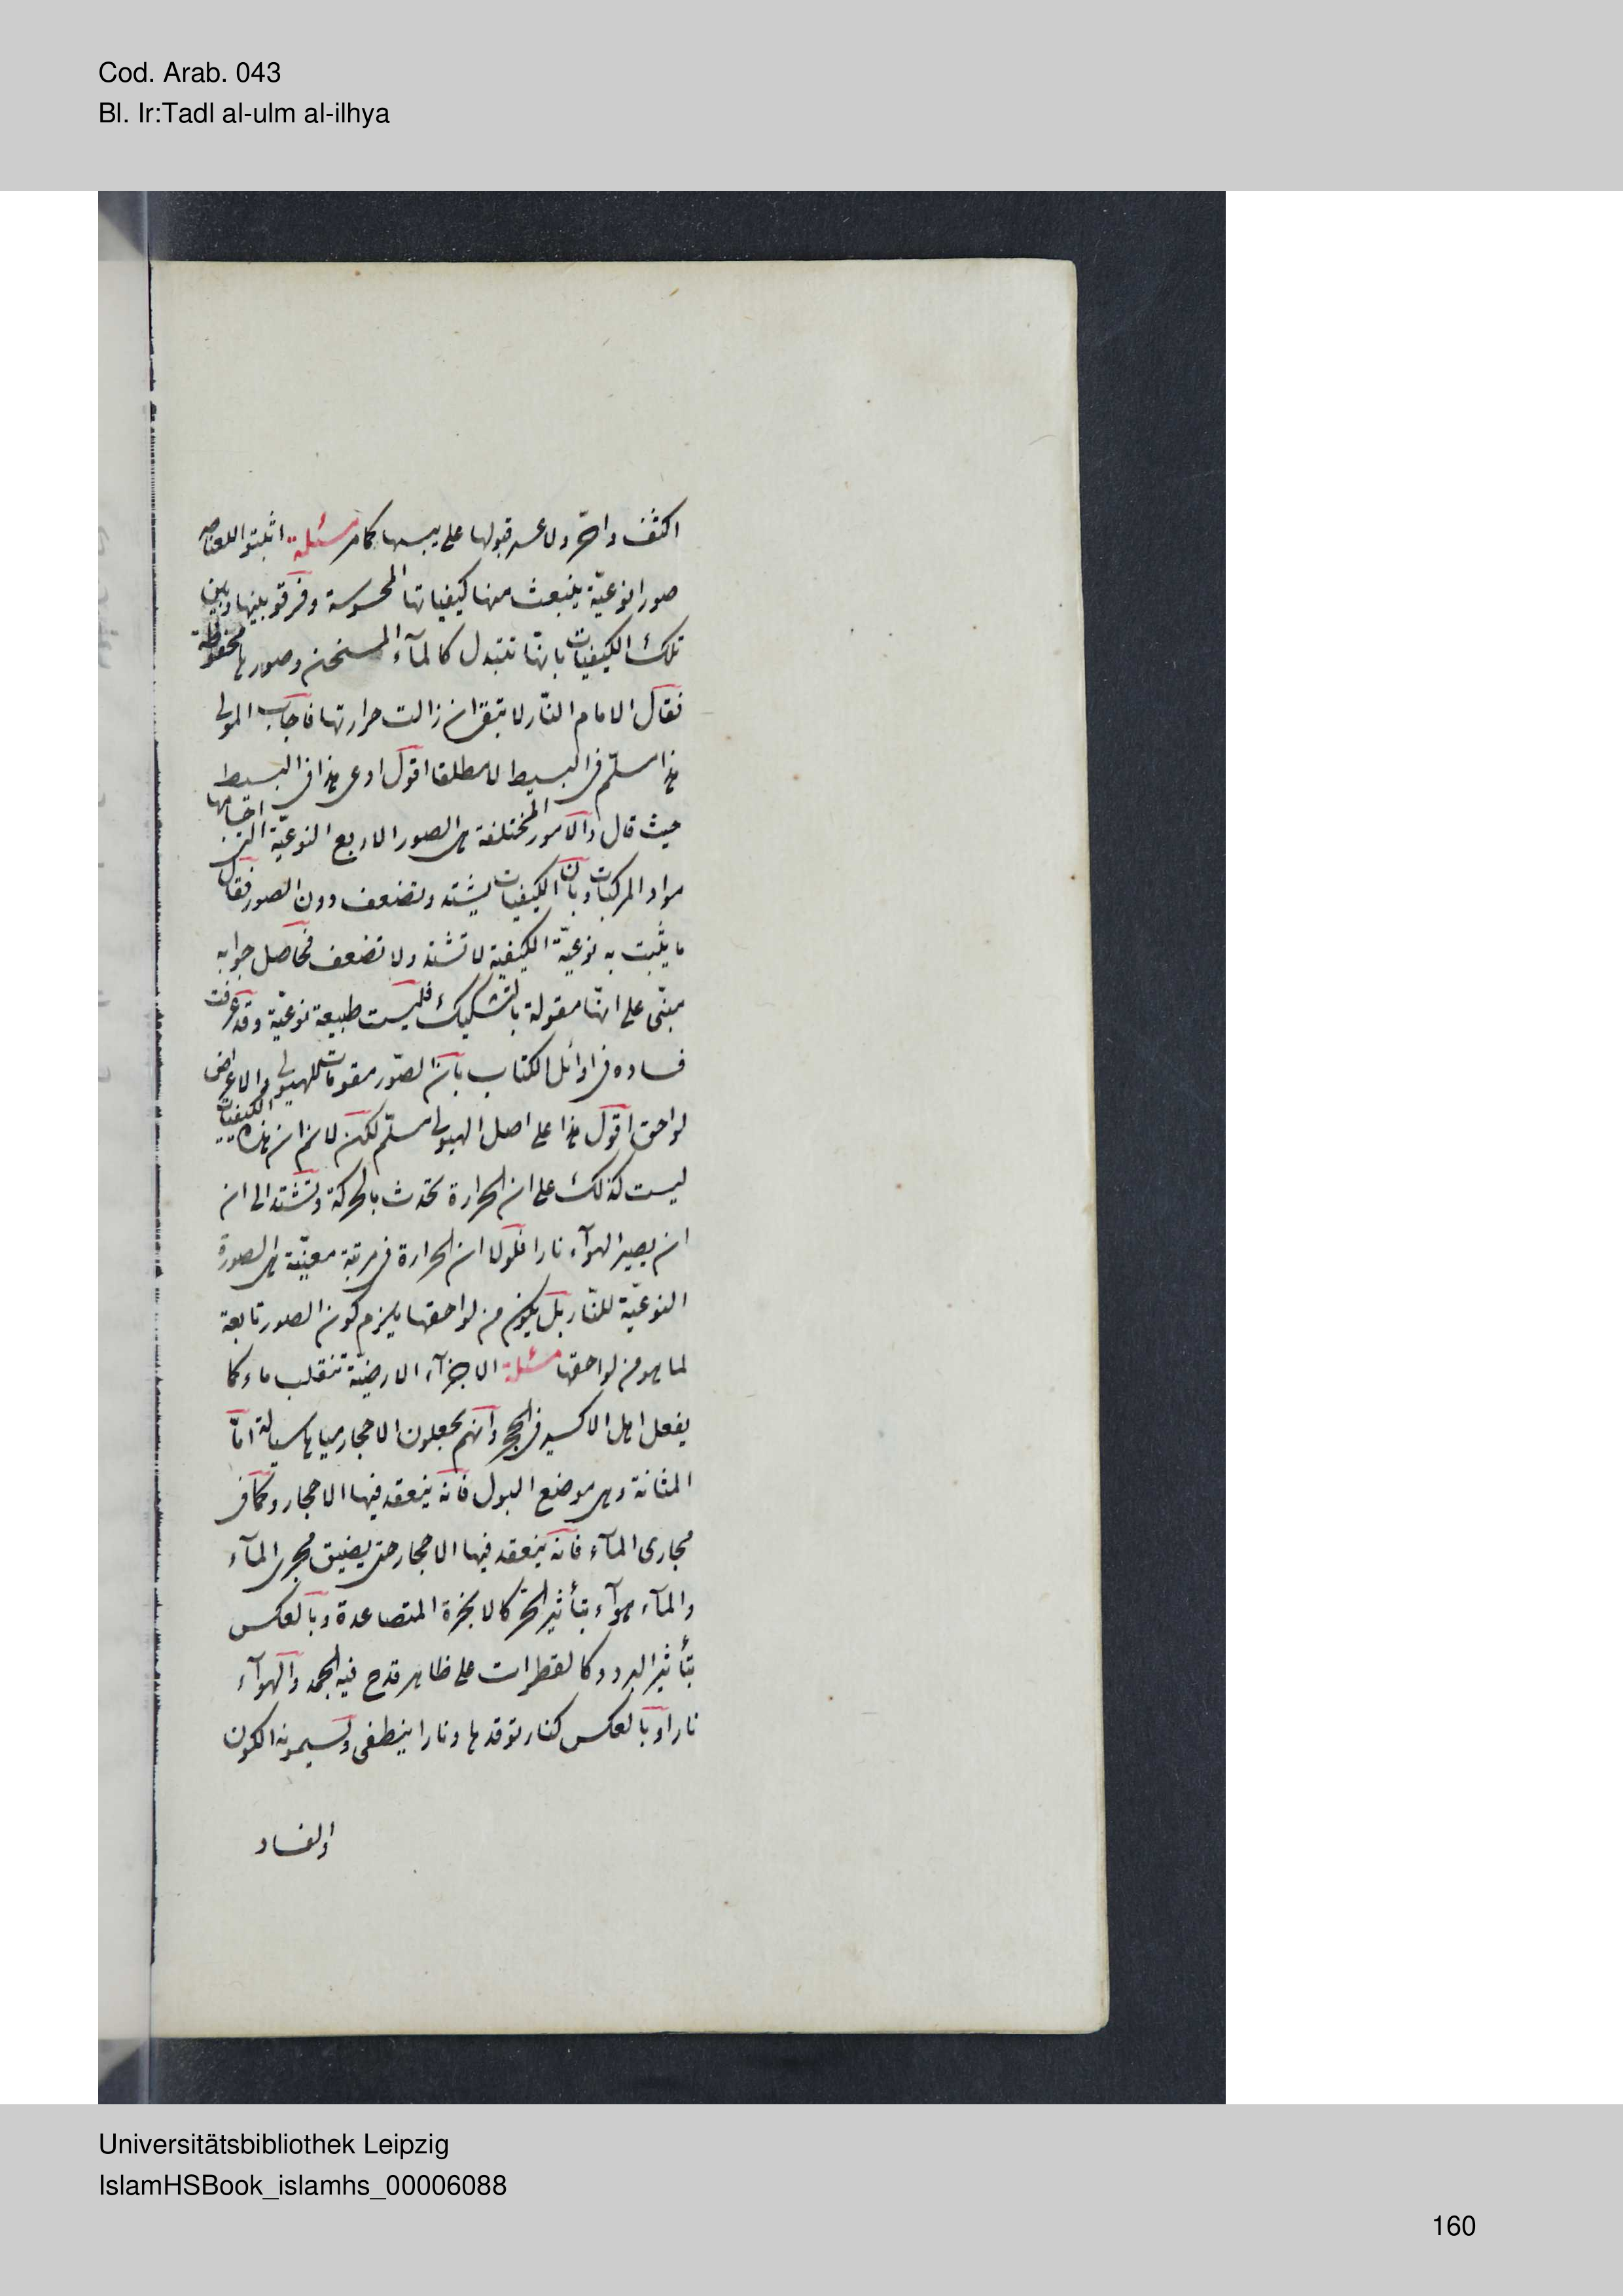 Cod. Arab. 043
Bl. Ir:Tadl al-ulm al-ilhya
اكثف واحرّ ولا عسر قبولها على يبسها كما مر مسئلة اثبتوا للعناصر
صورا نوعيّة ينبعث منها كيفياتها المحسوسة وفرقوا بينها وبين
تلك الكيفيات بانّها تتبدل كالمآء المسخن وصورها محفوظة
فقال الامام النّار لا تبقى ان زالت حرارتها فاجاب المولى
هذا مسلّم فى البسيط لا مطلقا اقول ادعى هذا فى البسيط
حيث قال والامور المختلفة هى الصور الاربع النوعيّة التى اجسامها
مواد المركبات وبان الكيفيات يشتد وتضعف دون الصور فقال
ما يثبت به نوعيّة الكيفية لا تشتد ولا تضعف فحاصل جوابه
مبنى على انّها مقولة بالتشكيك فليست طبيعة نوعيّة وقد عرفت
فساده فى اوائل الكتاب بان الصّور مقومات للهيولى والاعراض
لواحق اقول هذا على اصل الهيولى مسلّم لكن لا نم ان هذه الكيفيات
ليست كذلك على ان الحرارة تحدث بالحركة وتشتد الى ان
ان يصير الهوآء نارا فلولا ان الحرارة فى مرتبة معيّنة هى الصورة
النوعيّة للنّار بل يكون من لواحقها يلزم كون الصور تابعة
لما هو من لواحقها مسئلة الاجزآء الارضيّة تنقلب ماء كما
يفعل اهل الاكسير فى الحجر وانهم يجعلون الاحجار مياها سيالة امّا
المثانة وهى موضع البول فانه ينعقد فيها الاحجار وكما فى
مجارى المآء فانه ينعقد فيها الاحجار حتى يضيق مجرى المآء
والمآء هوآء بتأثير الحر كالابخرة المتصاعدة وبالعكس
بتأثير البرد وكالقطرات على ظاهر قدح فيه الجمد والهوآء
نارا وبالعكس كنار توقدها ونارا ينطفى ويسمونه الكون
والفساد
Universitätsbibliothek Leipzig
IslamHSBook_islamhs_00006088
160